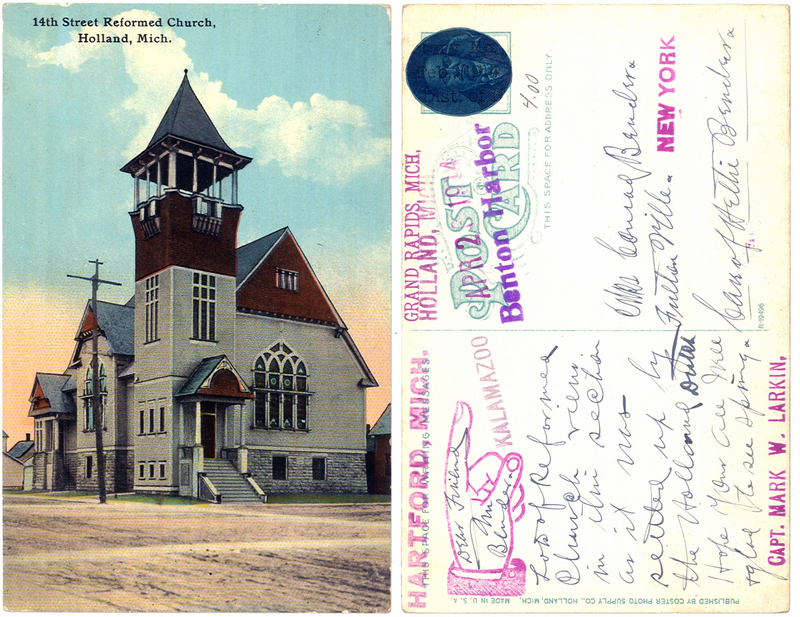 14th Street Reformed Church,
Holland, Mich.
4.00
THIS SPACE FOR ADDRESS ONLY.
POST
CARD
GRAND RAPIDS, MICH,
HOLLAND, MICH
APR 25 19
Benton Harbor
NEW YORK
Mr Conrad Bender.
Fulton Ville.
Care of Hettie Bender.
R-19496
HARTFORD, MICH.
THIS SPACE FOR WRITING MESSAGES.
KALAMAZOO
Dear Friend
Mr
Bender.
Lots of Reformed
Church views
in this section
as it was
settled up by
the Holland Dutch
Hope you are Mee
& glad to see spring.
CAPT. MARK W. LARKIN,
PUBLISHED BY COSTER PHOTO SUPPLY CO., HOLLAND, MICH. MADE IN U. S. A.